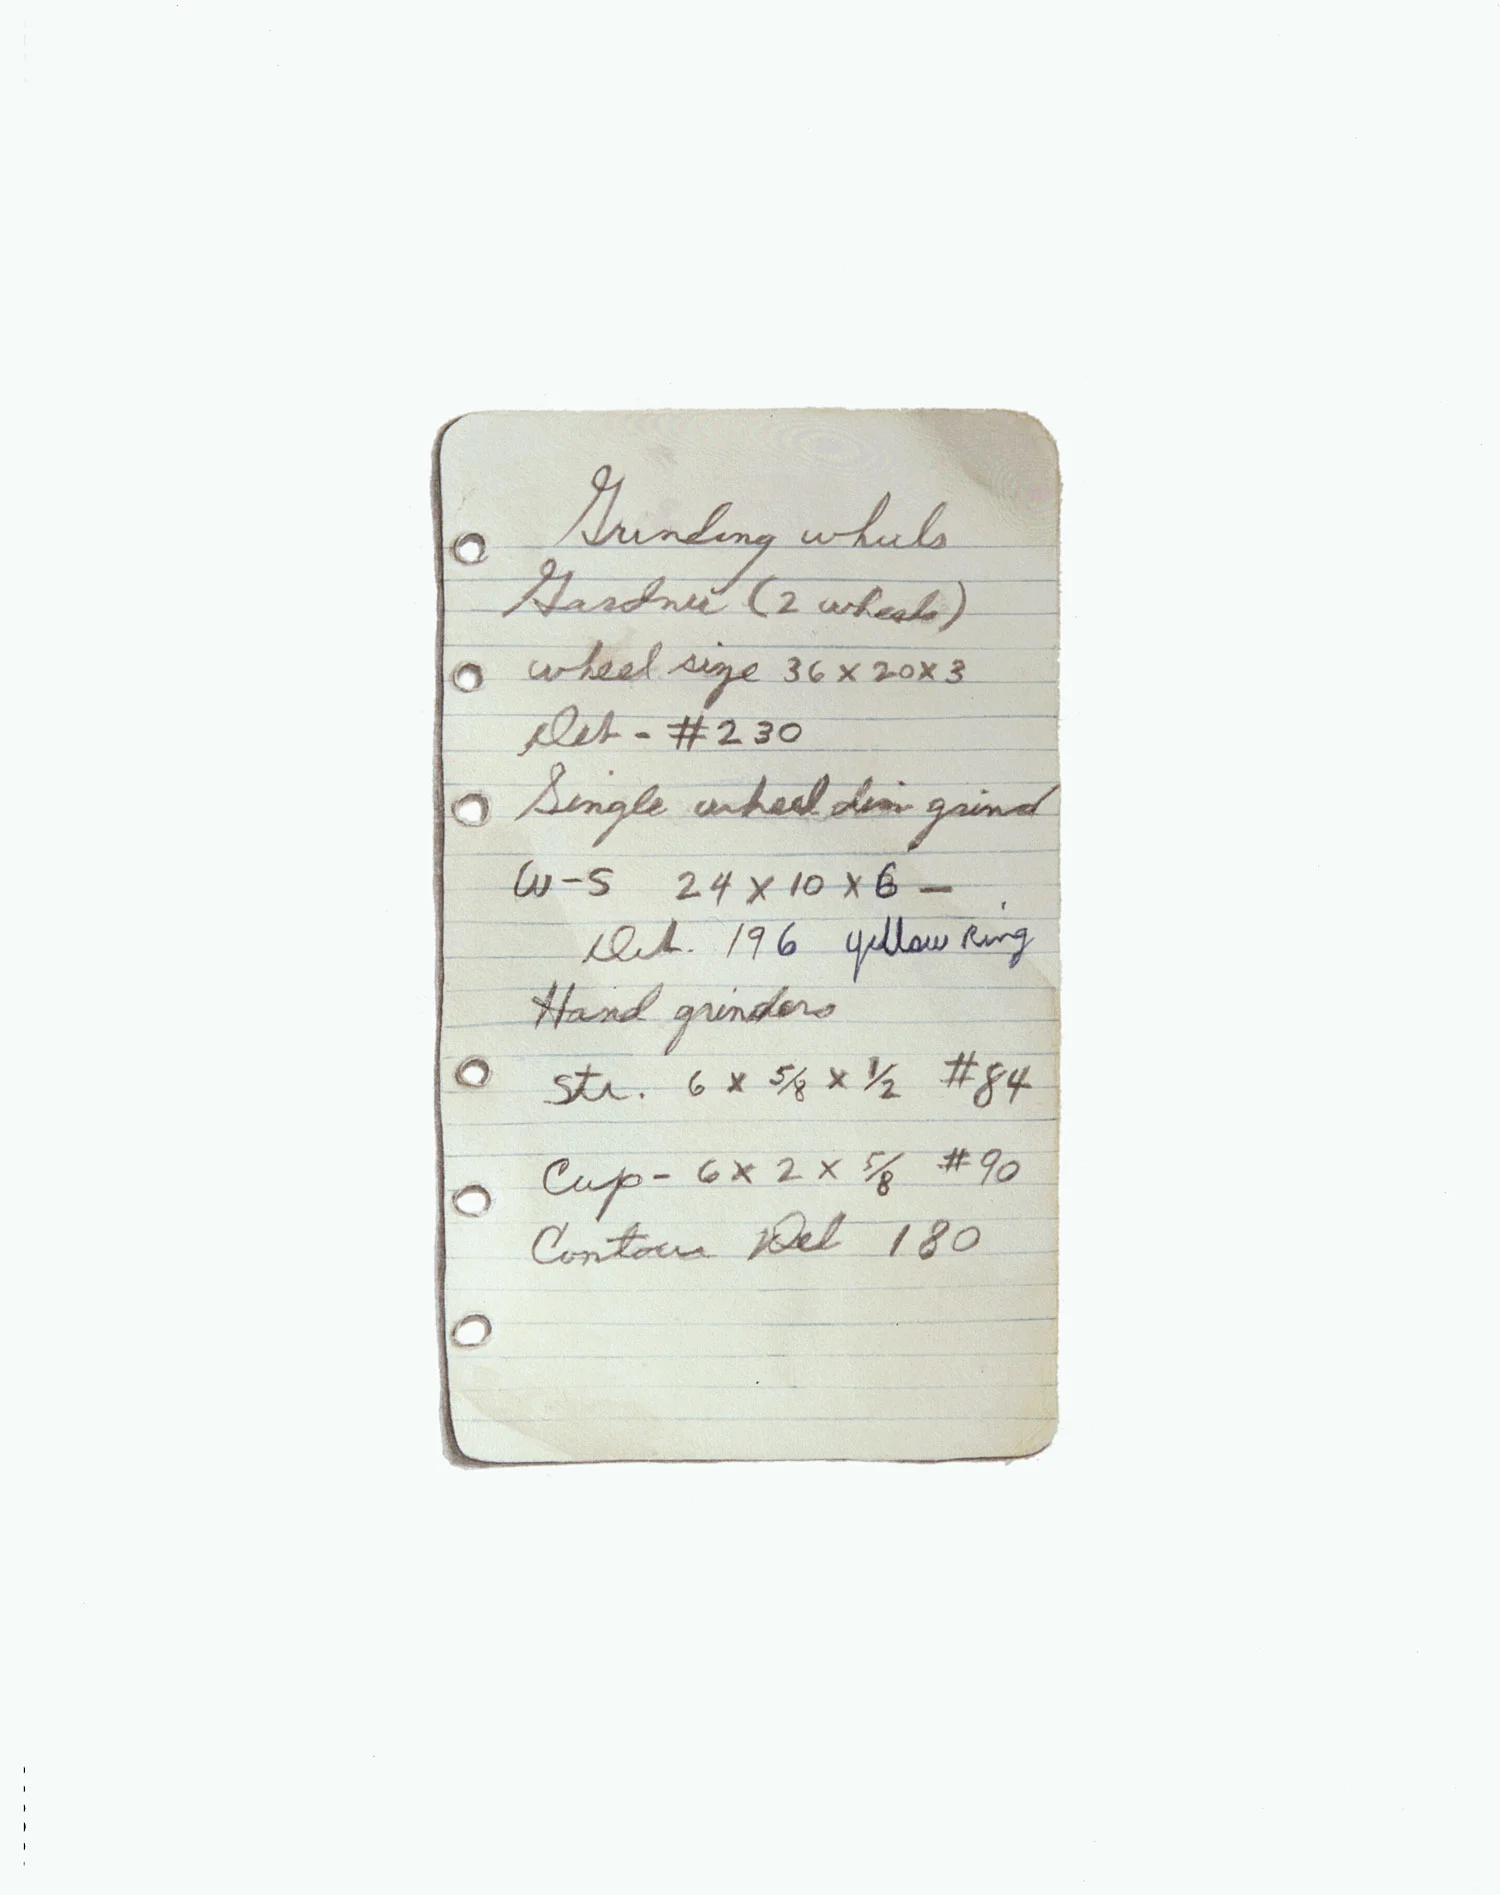 Grinding wheels
Gardner (2 wheels)
wheel size 36 x 20 x 3
Det - #230
Single wheel dim grind
W-S 24 x 10 x 6 —
Det. 196 yellow Ring
Hand grinders
Str. 6 x 5/8 x 1/2 #84
Cup - 6 x 2 x 5/8 #90
Contour Det 180